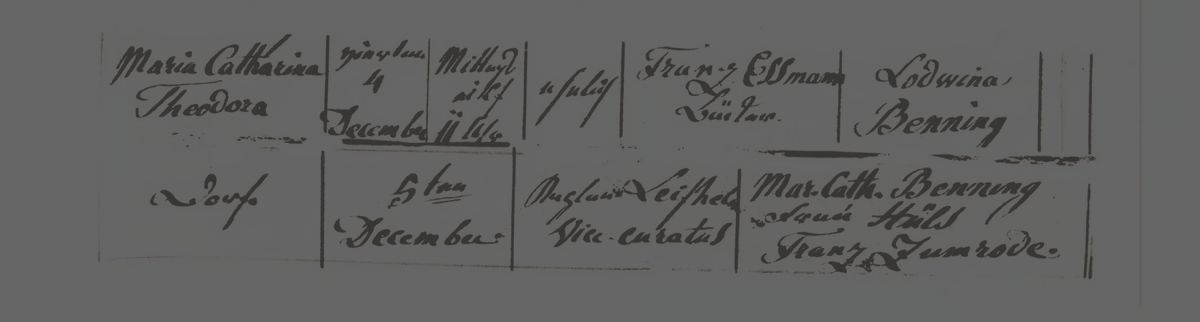 Maria Catharina
Theodora
4
December
Mittags
11 Uhr
ehelich
Franz Essmann
Lodwina
Benning
Dorf
5ten
December
Leifhel
Vice-curatus
Mar. Cath. Benning
Hüls
Franz Zumrode